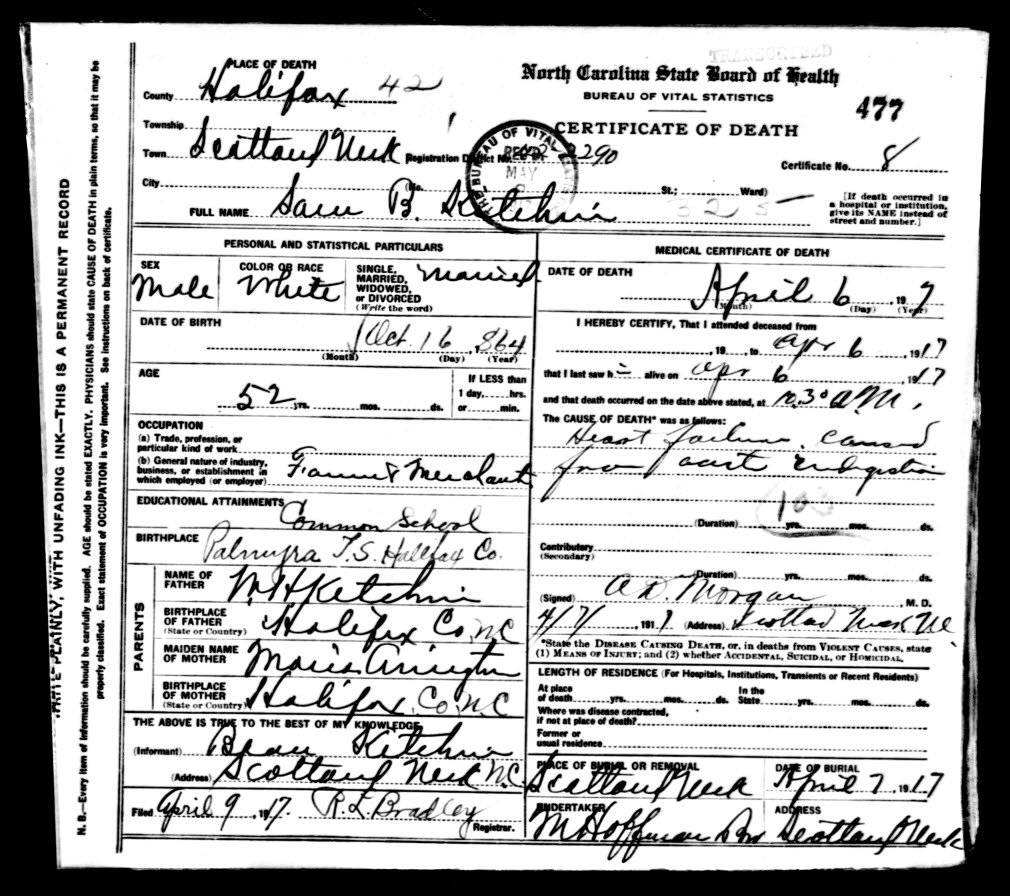 TRANSCRIBED
PLACE OF DEATH
North Carolina State Board of Health
BUREAU OF VITAL STATISTICS
477
County Halifax 42
CERTIFICATE OF DEATH
Township
Town Scotland Neck Registration District No. 2290 Certificate No. 8
THE BUREAU OF VITAL
REC'D
MAY
City (No. St.; Ward)
325
[If death occurred in
a hospital or institution,
give its NAME instead of
street and number.]
FULL NAME Sam B. Kitchin
PERSONAL AND STATISTICAL PARTICULARS
SEX Male
COLOR OR RACE White
SINGLE,
MARRIED,
WIDOWED,
or DIVORCED
(Write the word)
Married
DATE OF BIRTH
Oct. 16, 1864
(Month) (Day) (Year)
AGE
52 yrs. mos. ds.
If LESS than
1 day, hrs.
or min.
OCCUPATION
(a) Trade, profession, or
particular kind of work
(b) General nature of industry,
business, or establishment in
which employed (or employer)
Farmer & Merchant
EDUCATIONAL ATTAINMENTS
Common School
BIRTHPLACE
Palmyra T.S. Halifax Co.
PARENTS
NAME OF
FATHER
W. H Kitchin
BIRTHPLACE
OF FATHER
(State or Country)
Halifax Co. NC
MAIDEN NAME
OF MOTHER
Maria Arrington
BIRTHPLACE
OF MOTHER
(State or Country)
Halifax Co. N.C
THE ABOVE IS TRUE TO THE BEST OF MY KNOWLEDGE
(Informant) Kitchin
(Address) Scotland Neck N.C.
Filed April 9, 1917. R.L. Bradley
Registrar.
MEDICAL CERTIFICATE OF DEATH
DATE OF DEATH
April 6, 197
(Month) (Day) (Year)
I HEREBY CERTIFY, That I attended deceased from
, 19 to Apr 6, 1917
that I last saw h alive on Apr 6 1917
and that death occurred on the date above stated, at 10.30 a M.
The CAUSE OF DEATH* was as follows:
Heart failure, caused
from acute indigestion
103
(Duration) yrs. mos. ds.
Contributory
(Secondary)
(Duration) yrs. mos. ds.
(Signed) A. D. Morgan, M. D.
4/7/ 1917 (Address) Scotland Neck NC
*State the DISEASE CAUSING DEATH, or, in deaths from VIOLENT CAUSES, state
(1) MEANS OF INJURY; and (2) whether ACCIDENTAL, SUICIDAL, or HOMICIDAL.
LENGTH OF RESIDENCE (For Hospitals, Institutions, Transients or Recent Residents)
At place
of death yrs. mos. ds.
In the
State yrs. mos. ds.
Where was disease contracted,
if not at place of death?
Former or
usual residence
PLACE OF BURIAL OR REMOVAL
Scotland Neck
DATE OF BURIAL
April 7, 1917
UNDERTAKER
M Hoffman Bro
ADDRESS
Scotland Neck
WRITE PLAINLY, WITH UNFADING INK—THIS IS A PERMANENT RECORD
N. B.—Every item of information should be carefully supplied. AGE should be stated EXACTLY. PHYSICIANS should state CAUSE OF DEATH in plain terms, so that it may be
properly classified. Exact statement of OCCUPATION is very important. See instructions on back of certificate.